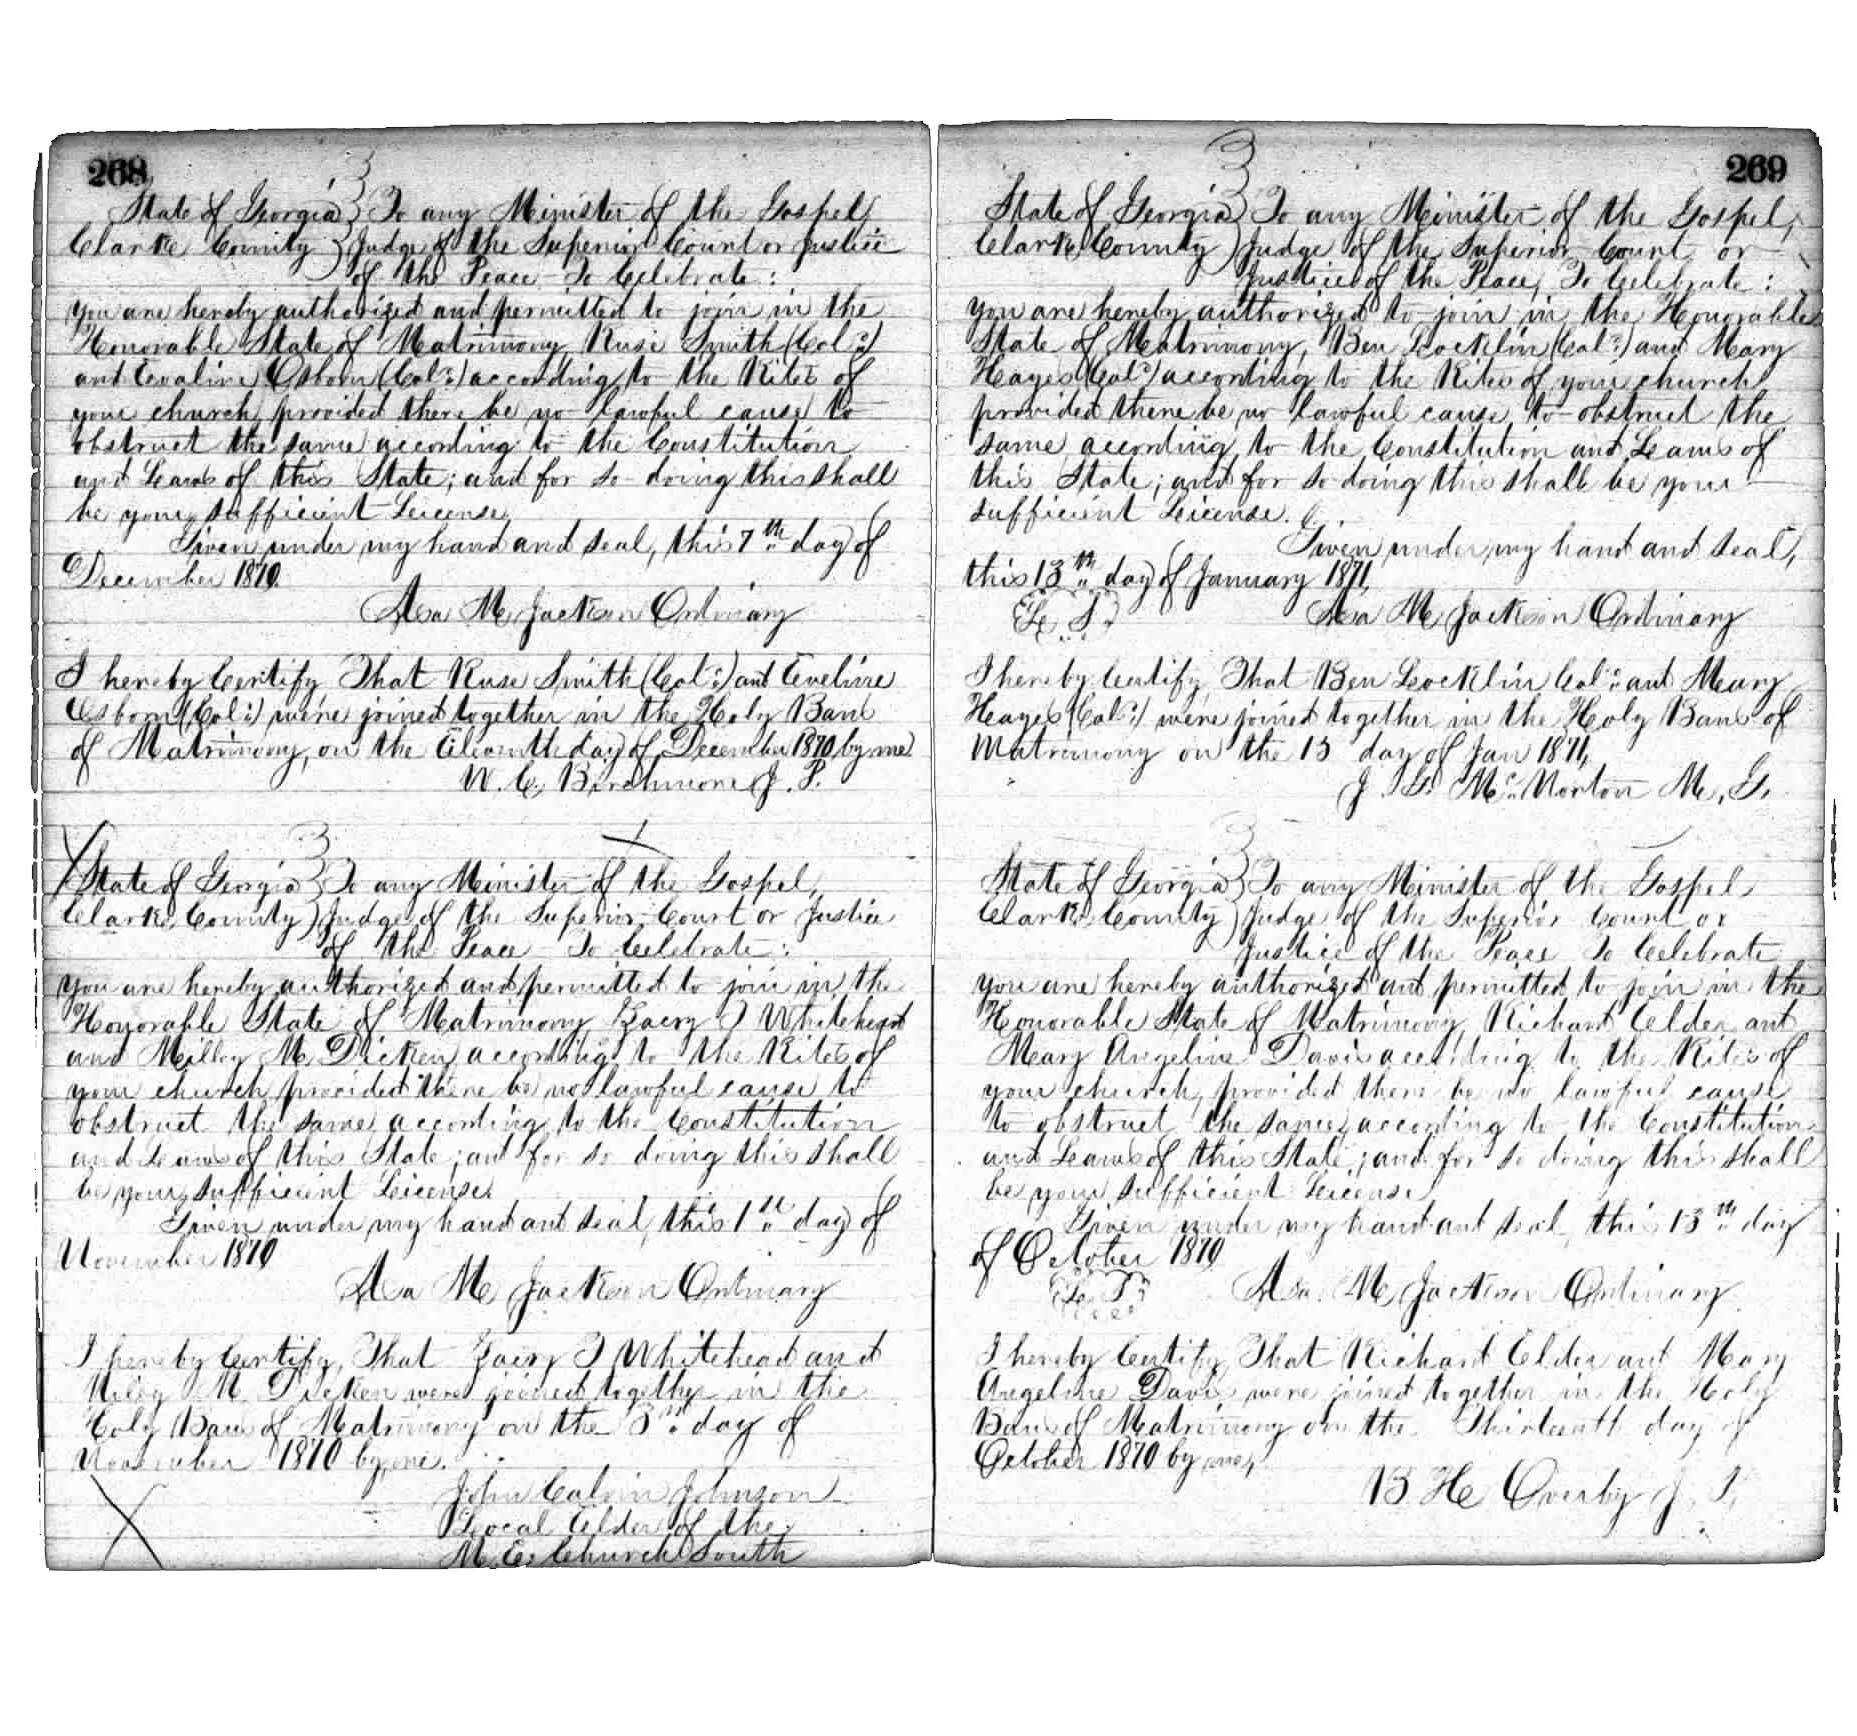 268
State of Georgia } To any Minister of the Gospel,
Clarke County } Judge of the Superior Court or Justice
of the Peace To Celebrate:
You are hereby authorized and permitted to join in the
Honorable State of Matrimony, Ruse Smith (Col:)
and Evaline Osborn (Col:) according to the Rites of
your church, provided there be no lawful cause to
obstruct the same according to the Constitution
and Laws of this State; and for so doing this shall
be your sufficient License
Given under my hand and seal, this 7th day of
December 1870.
Asa M Jackson Ordinary
I hereby Certify That Ruse Smith (Col:) and Eveline
Osborn (Col:) were joined together in the Holy Bans
of Matrimony, on the Eleventh day of December 1870 by me
W. C. Birchmore J. P.
State of Georgia } To any Minister of the Gospel,
Clarke County } Judge of the Superior Court or Justice
of the Peace To Celebrate:
You are hereby authorized and permitted to join in the
Honorable State of Matrimony, Zacry T Whitehead
and Milley M Dicken according to the Rites of
your church provided there be no lawful cause to
obstruct the same according to the Constitution
and Laws of this State; and for so doing this shall
be your sufficient License
Given under my hand and seal, this 1st day of
November 1870
Asa M Jackson Ordinary
I hereby Certify, That Zacry T Whitehead and
Miley M Dicken were joined together in the
Holy Bans of Matrimony on the 3rd day of
November 1870 by me.
John Calvin Johnson
Local Elder of the
M. E. Church South
269
State of Georgia } To any Minister of the Gospel,
Clarke County } Judge of the Superior Court or
Justice of the Peace, To Celebrate:
You are hereby authorized to join in the Honorable
State of Matrimony, Ben Locklin (Col:) and Mary
Hayes (Col:) according to the Rites of your church
provided there be no lawful cause to obstruct the
same according to the Constitution and Laws of
this State; and for so doing this shall be your
sufficient License.
Given under my hand and seal,
this 13th day of January 1871,
L. S. Asa M Jackson Ordinary
I hereby Certify That Ben Locklin Col: and Mary
Hayes (Col:) were joined together in the Holy Bans of
Matrimony on the 13 day of Jan 1871,
J. G. McNorton M. G.
State of Georgia } To any Minister of the Gospel
Clarke County } Judge of the Superior Court or
Justice of the Peace To Celebrate
You are hereby authorized and permitted to join in the
Honorable State of Matrimony, Richard Elder and
Mary Angeline Davis according to the Rites of
your church, provided there be no lawful cause
to obstruct the same, according to the Constitution
and Laws of this State; and for so doing this shall
be your sufficient License
Given under my hand and seal, this 13th day
of October 1870
L. S. Asa M Jackson Ordinary
I hereby Certify, That Richard Elder and Mary
Angeline Davis were joined together in the Holy
Bans of Matrimony on the Thirteenth day of
October 1870 by me,
B H Overby J. P.